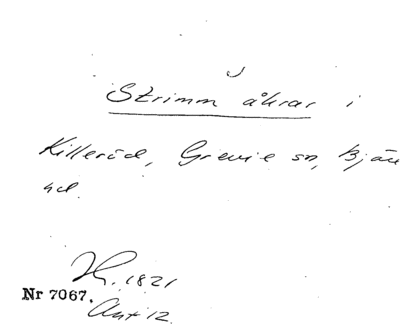 Strimm åkrar i
Killeröd, Grevie sn, Bjäre
hd.
H. 1821
Nr 7067.
Ant 12.